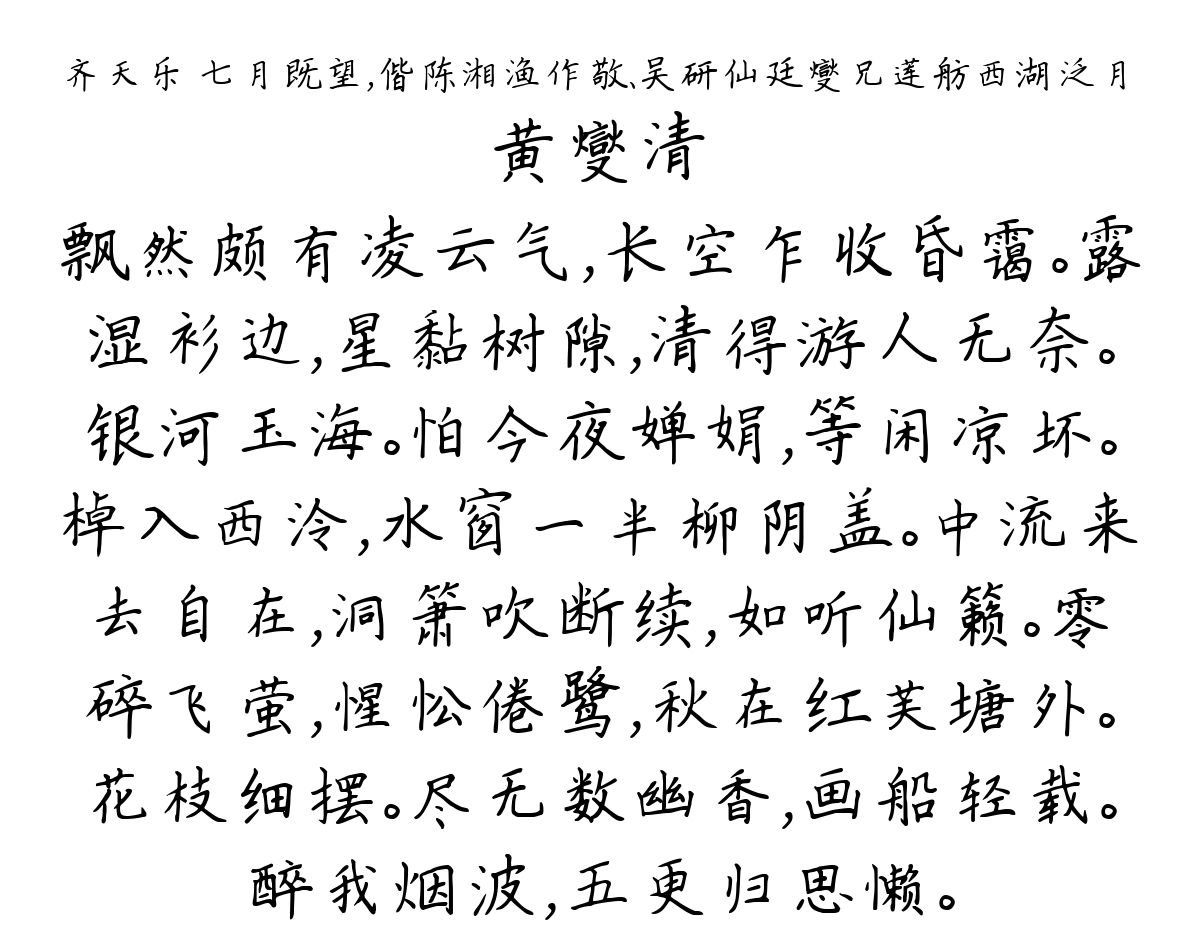 齐天乐 七月既望,偕陈湘渔作敬、吴研仙廷燮兄莲舫西湖泛月
黄燮清
飘然颇有凌云气,长空乍收昏霭。露
湿衫边,星黏树隙,清得游人无奈。
银河玉海。怕今夜婵娟,等闲凉坏。
棹入西泠,水窗一半柳阴盖。中流来
去自在,洞箫吹断续,如听仙籁。零
碎飞萤,惺忪倦鹭,秋在红芙塘外。
花枝细摆。尽无数幽香,画船轻载。
醉我烟波,五更归思懒。